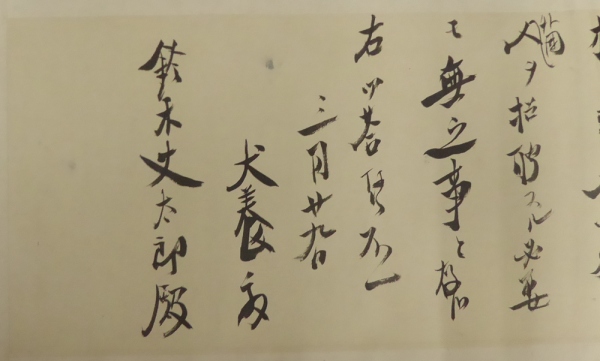 人ヲ招聘スル必要
モ無之事と存候
右御答 不一
三月廿九日
犬養毅
鈴木文太郎殿